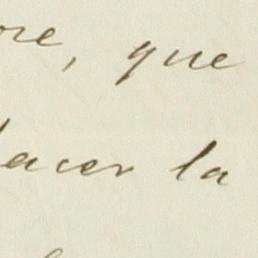 re, que
acer la